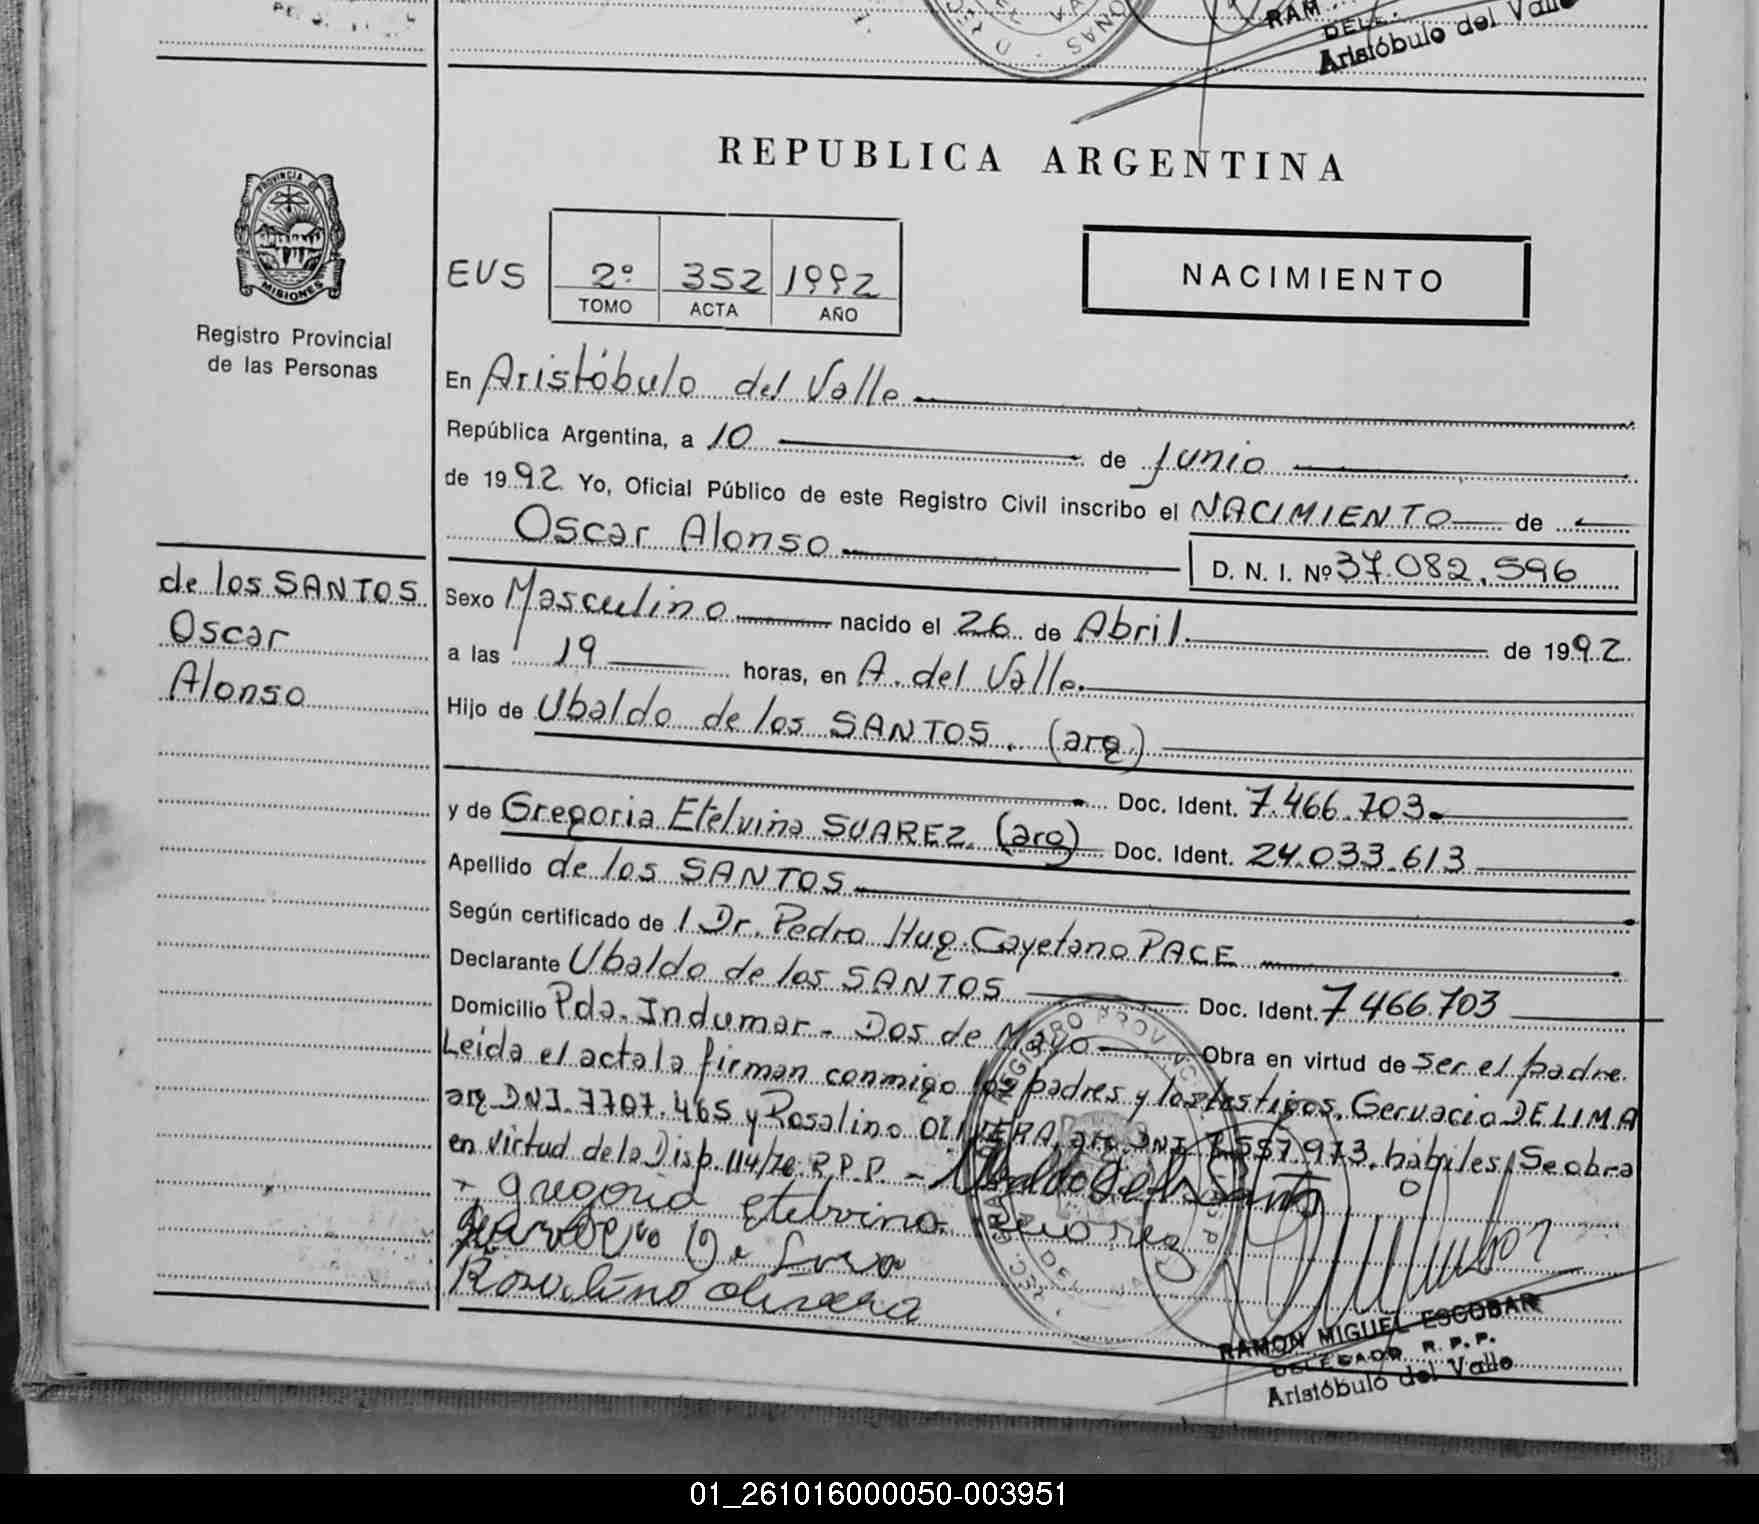 RAM
DELE.
Aristóbulo del Valle
REPUBLICA ARGENTINA
PROVINCIA DE
MISIONES
Registro Provincial
de las Personas
EUS 2º 352 1992
TOMO ACTA AÑO
NACIMIENTO
En Aristóbulo del Valle
República Argentina, a 10 de Junio
de 1992 Yo, Oficial Público de este Registro Civil inscribo el NACIMIENTO de
Oscar Alonso
D. N. I. Nº 37.082.596
de los SANTOS
Oscar
Alonso
Sexo Masculino nacido el 26 de Abril de 1992
a las 19 horas, en A. del Valle.
Hijo de Ubaldo de los SANTOS. (arg)
Doc. Ident. 7.466.703
y de Gregoria Etelvina SUAREZ. (arg) Doc. Ident. 24.033.613
Apellido de los SANTOS
Según certificado de l Dr. Pedro Hug. Cayetano PACE
Declarante Ubaldo de los SANTOS Doc. Ident. 7466703
Domicilio Pda. Indumar - Dos de Mayo Obra en virtud de ser el padre.
Leida el acta la firman conmigo los padres y los testigos. Gervacio DE LIMA
arg DNI. 7707.465 y Rosalino OLIVERA, arg. DNI 7.557.973. hábiles. Se obra
en virtud de la Disp. 114/78. R.P.P. - Ubaldo de los Santos
Gregoria Etelvina Suarez
Rosalino Olivera
RAMON MIGUEL ESCOBAR
DELEGADO R. P. P.
Aristóbulo del Valle
01_261016000050-003951